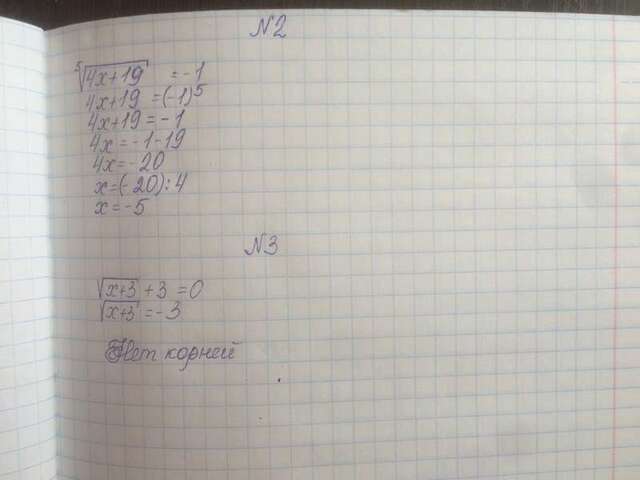 №2
⁵√4x+19 = -1
4x+19 = (-1)⁵
4x+19 = -1
4x = -1-19
4x = -20
x = (-20):4
x = -5
№3
√x+3 + 3 = 0
√x+3 = -3
Нет корней